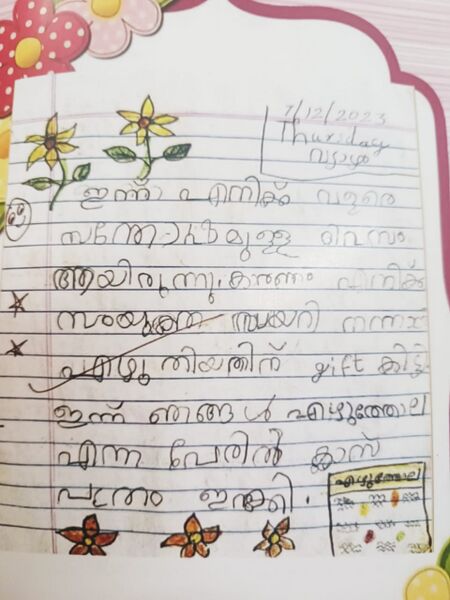 7/12/2023
Thursday
വ്യാഴം
ഇന്ന് എനിക്ക് വളരെ
സന്തോഷമുള്ള ദിവസം
ആയിരുന്നു. കാരണം എനിക്ക്
സംയുക്ത ഡയറി നന്നായ്
എഴുതിയതിന് gift കിട്ടി
ഇന്ന് ഞങ്ങൾ എഴുത്തോല
എന്ന പേരിൽ ക്ലാസ്
പത്രം ഇറക്കി.
എഴുത്തോല